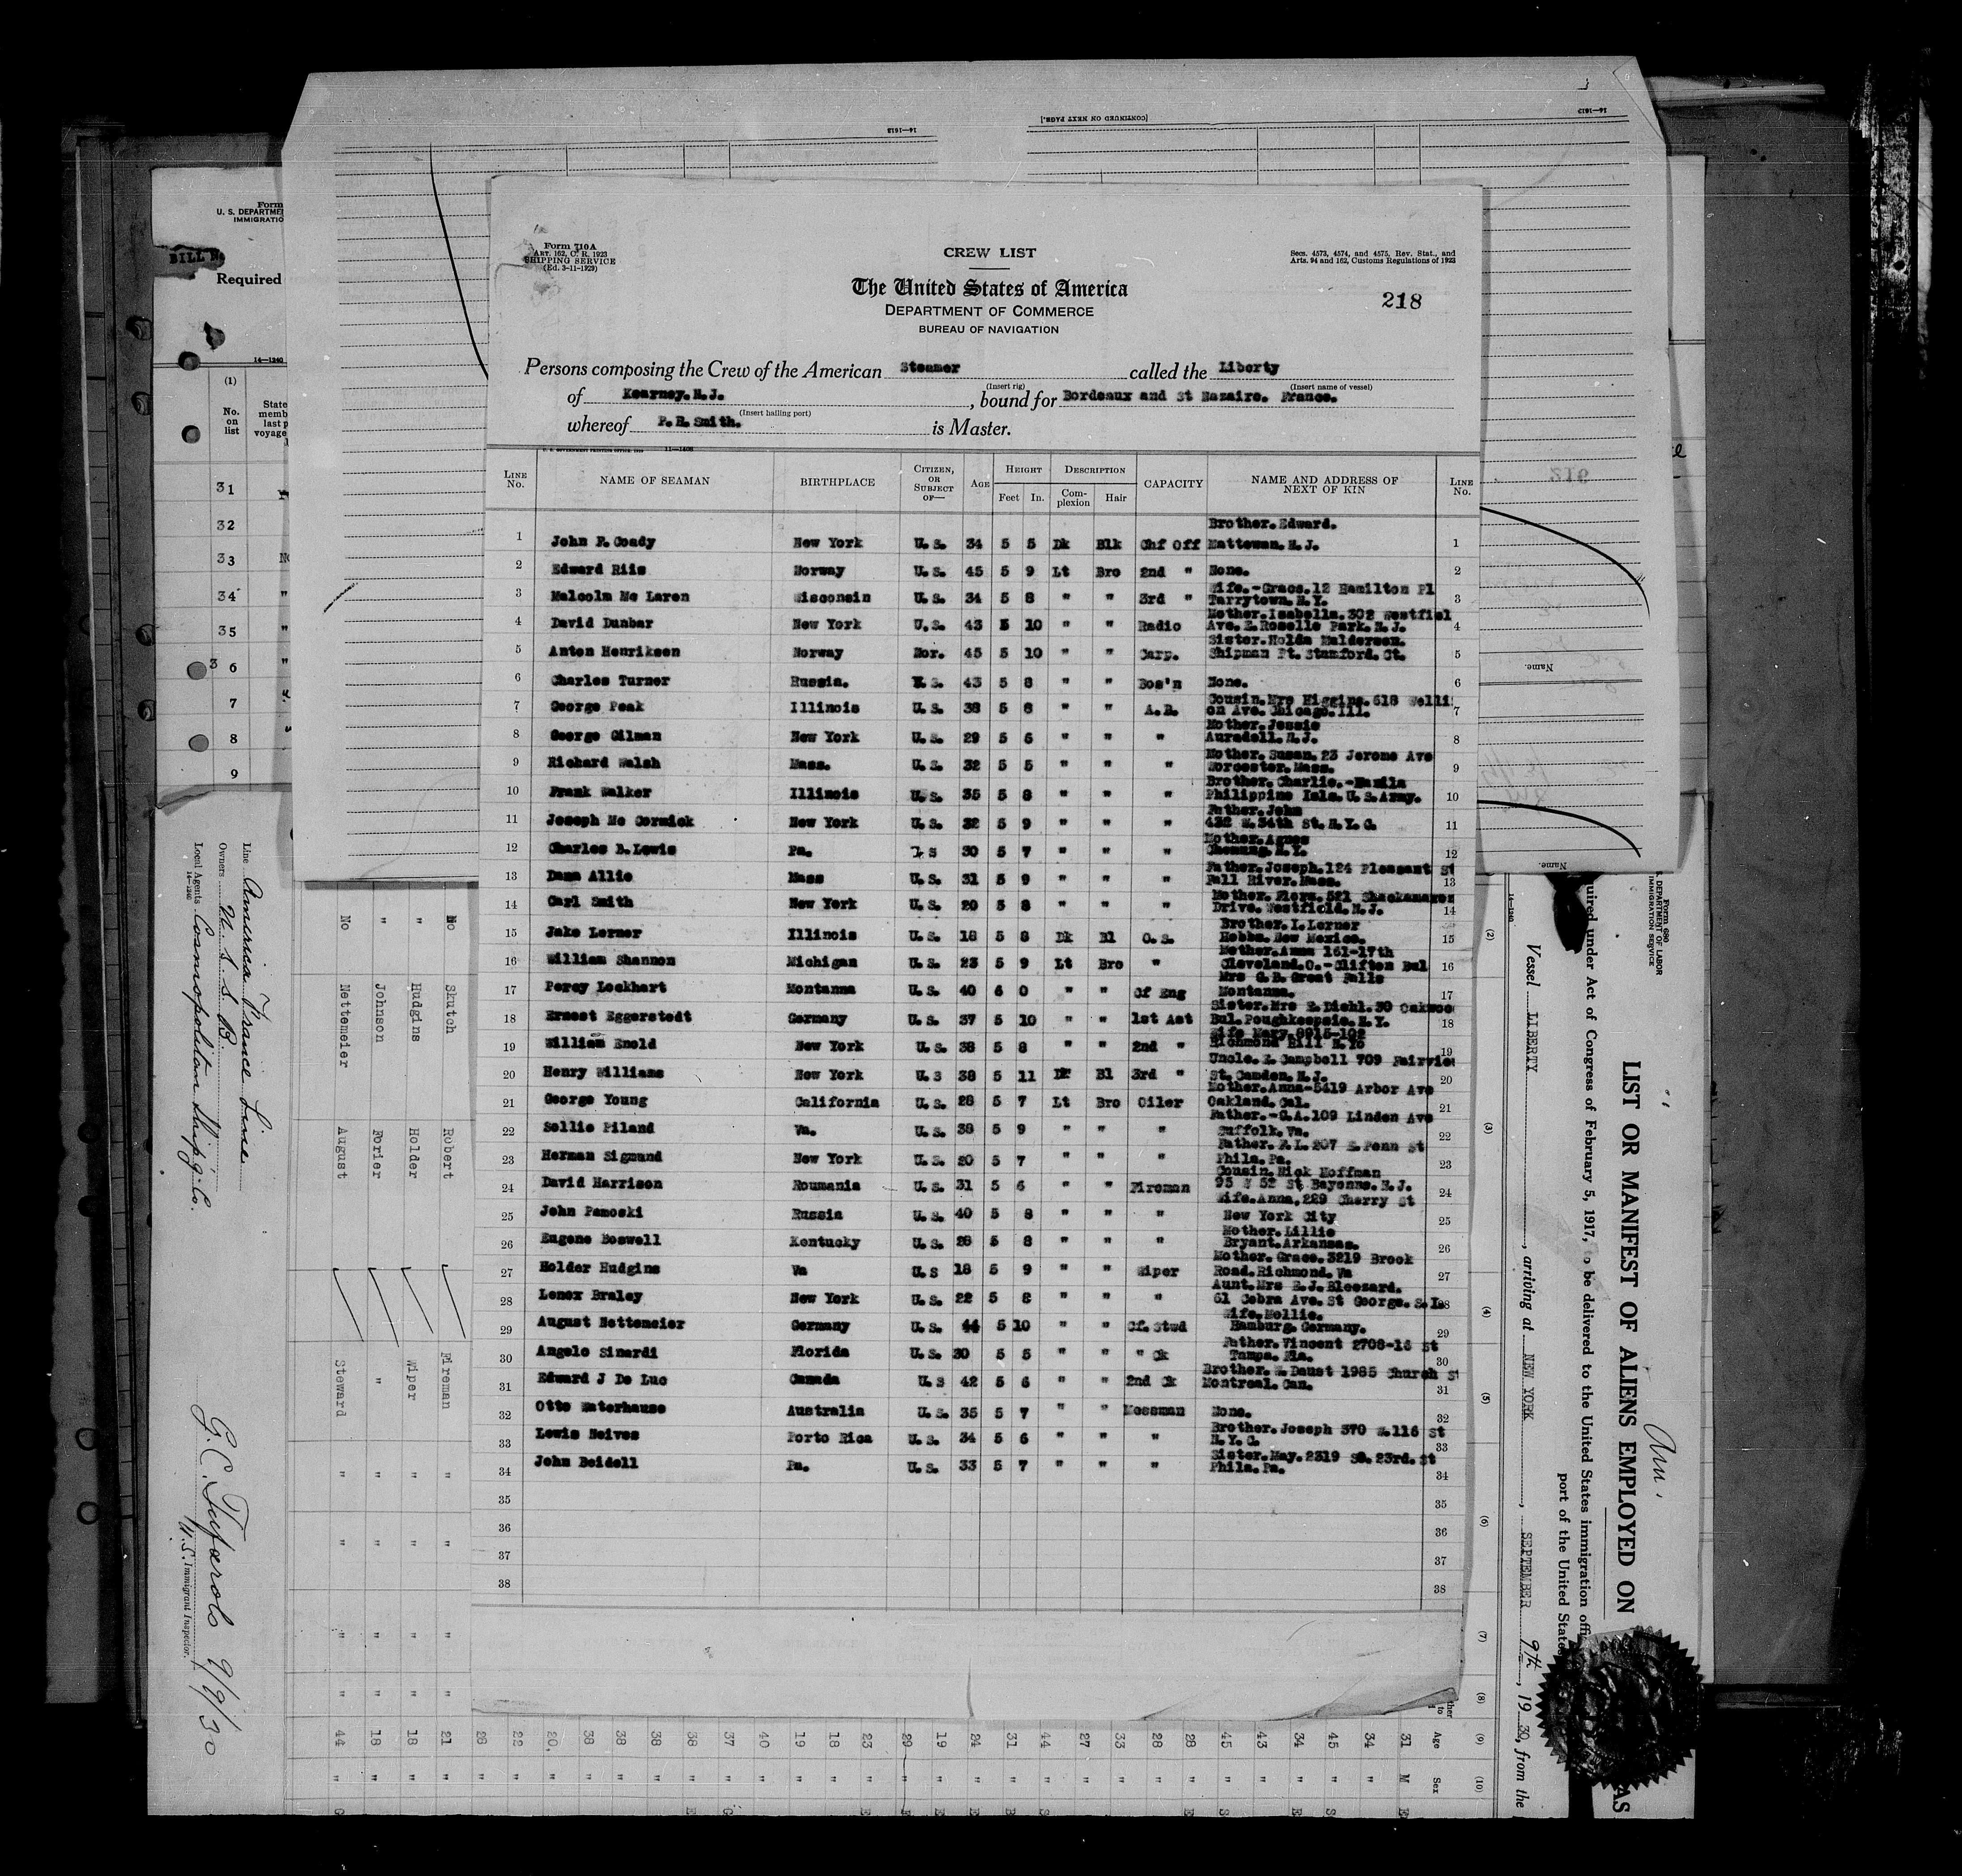 [CONTINUED ON NEXT PAGE.]
14—1613
14—1613
Form
U. S. DEPARTME
IMMIGRATIO
BILL N
Required
14—1240
(1)
No. on list
State
memb
last p
voyage
31
32
33
34
35
3 6
7
8
9
Form 710A
ART. 162, C. R. 1923
SHIPPING SERVICE
(Ed. 3-11-1929)
CREW LIST
Secs. 4573, 4574, and 4575, Rev. Stat., and
Arts. 94 and 162, Customs Regulations of 1923
The United States of America
218
DEPARTMENT OF COMMERCE
BUREAU OF NAVIGATION
Persons composing the Crew of the American Steamer called the Liberty
(Insert rig) (Insert name of vessel)
of Kearney. N. J. , bound for Bordeaux and St Nazaire. France.
(Insert hailing port)
whereof P. H. Smith. is Master.
U. S. GOVERNMENT PRINTING OFFICE 11—1408
LINE No. NAME OF SEAMAN BIRTHPLACE CITIZEN, OR SUBJECT OF— AGE HEIGHT DESCRIPTION CAPACITY NAME AND ADDRESS OF NEXT OF KIN LINE No.
Feet In. Complexion Hair
Brother. Edward.
1 John F. Coady New York U. S. 34 5 5 Dk Blk Chf Off Mattewan. N. J. 1
2 Edward Riis Norway U. S. 45 5 9 Lt Bro 2nd " None. 2
Wife.-Grace. 12 Hamilton Pl
3 Malcolm Mc Laren Wisconsin U. S. 34 5 8 " " 3rd " Tarrytown. N. Y. 3
Mother. Isabella. 302 Westfiel
4 David Dunbar New York U. S. 43 5 10 " " Radio Ave. E. Roselle Park. N. J. 4
Sister. Holda Malderson.
5 Anton Henriksen Norway Nor. 45 5 10 " " Carp. Shipman Pt. Stamford. Ct. 5
6 Charles Turner Russia. U. S. 43 5 8 " " Bos'n None. 6
Cousin. Mrs Higgins. 618 Welli
7 George Peak Illinois U. S. 38 5 8 " " A. B. on Ave. Chicago. Ill. 7
Mother. Jessie
8 George Gilman New York U. S. 29 5 6 " " " N. J. 8
Mother. Susan. 23 Jerome Ave
9 Richard Walsh Mass. U. S. 32 5 5 " " " Worcester. Mass. 9
Brother. Charlie.-Manila
10 Frank Walker Illinois U. S. 35 5 8 " " " Philippine Isls. U. S. Army. 10
Father. John
11 Joseph Mc Cormick New York U. S. 32 5 9 " " " 432 W. 34th St. N. Y. C. 11
Mother. Agnes
12 Charles B. Lewis Pa. S 30 5 7 " " " Chemung. N. Y. 12
Father. Joseph. 124 Pleasant St
13 Dana Allie Mass U. S. 31 5 9 " " " Fall River. Mass. 13
Mother. 521
14 Carl Smith New York U. S. 20 5 8 " " " Drive. Westfield. N. J. 14
Brother. I. Lerner
15 Jake Lerner Illinois U. S. 18 5 8 Dk Bl O. S. Hobbs. New Mexico. 15
Mother. Anna 161-17th
16 William Shannon Michigan U. S. 23 5 9 Lt Bro " Cleveland. O.-Clifton Bul 16
Mrs G. B. Great Falls
17 Percy Lockhart Montanna U. S. 40 6 0 " " Cf Eng Montanna. 17
Sister. Mrs E. Diehl. 30 Oakwoo
18 Ernest Eggerstedt Germany U. S. 37 5 10 " " 1st Ast Bul. Poughkeepsie. N. Y. 18
Wife Mary. 8915-102
19 William Enold New York U. S. 38 5 8 " " 2nd " Richmond Hill N. Yo 19
Uncle. E. Campbell 709 Fairview
20 Henry Williams New York U. S 38 5 11 Dk Bl 3rd " St. Camden. N. J. 20
Mother. Anna-5419 Arbor Ave
21 George Young California U. S. 28 5 7 Lt Bro Oiler Oakland. Cal. 21
Father.-G. A. 109 Linden Ave
22 Sollie Piland Va. U. S. 38 5 9 " " " Suffolk. Va. 22
Father. F. L. 207 E. Penn St
23 Herman Sigmund New York U. S. 20 5 7 " " " Phila. Pa. 23
Cousin. Nick Hoffman
24 David Harrison Roumania U. S. 31 5 6 " " Fireman 95 W 52 St Bayonne. N. J. 24
Wife. Anna. 229 Cherry St
25 John Pamoski Russia U. S. 40 5 8 " " " New York City 25
Mother. Lillie
26 Eugene Boswell Kentucky U. S. 28 5 8 " " " Bryant. Arkansas. 26
Mother. Grace. 3219 Brook
27 Holder Hudgins Va U. S 18 5 9 " " Wiper Road. Richmond. Va 27
Aunt. Mrs E. J. Bleezard.
28 Lenox Braley New York U. S. 22 5 8 " " " 61 Cebra Ave. St George. S. I. 28
Wife. Mollie.
29 August Nettemeier Germany U. S. 44 5 10 " " Cf. Stwd Hamburg. Germany. 29
Father. Vincent 2708-16 St
30 Angelo Sinardi Florida U. S. 30 5 5 " " " Ck Tampa. Fla. 30
Brother. W. Daust 1985 Church St
31 Edward J De Luc Canada U. S 42 5 6 " " 2nd Ck Montreal. Can. 31
32 Otto Waterhouse Australia U. S. 35 5 7 " " Messman None. 32
Brother. Joseph 370 W. 116 St
33 Lewis Neives Porto Rica U. S. 34 5 6 " " " N. Y. C. 33
Sister. May. 2319 So. 23rd. St
34 John Beidell Pa. U. S. 33 5 7 " " " Phila. Pa. 34
35 35
36 36
37 37
38 38
Line America France Line
Owners U. S. S. B.
Local Agents Cosmopolitan Ship'g. Co.
14—1240
G. C. Tufarolo 9/9/30
U. S. Immigrant Inspector.
No Skutch Robert Fireman " " " " 21 "
" Hudgins Holder Wiper " " " " 18 "
" Johnson Forier " " " " " 18 "
No Nettemeier August Steward " " " " 44 "
28 22 20, 38 38 38 38 37 40 19 18 23 29 19 24 31 44 27 33 28 28 45 43 34 45 34 31
Age
Sex
M
(2)
(3)
(4)
(5)
(6)
(7)
(8)
(9)
(10)
Name.
Name.
Form 680
S. DEPARTMENT OF LABOR
IMMIGRATION SERVICE
LIST OR MANIFEST OF ALIENS EMPLOYED ON
AS
uired under Act of Congress of February 5, 1917, to be delivered to the United States immigration offi
port of the United State
Vessel LIBERTY , arriving at NEW YORK , SEPTEMBER 9th , 19 30, from the
14—1240